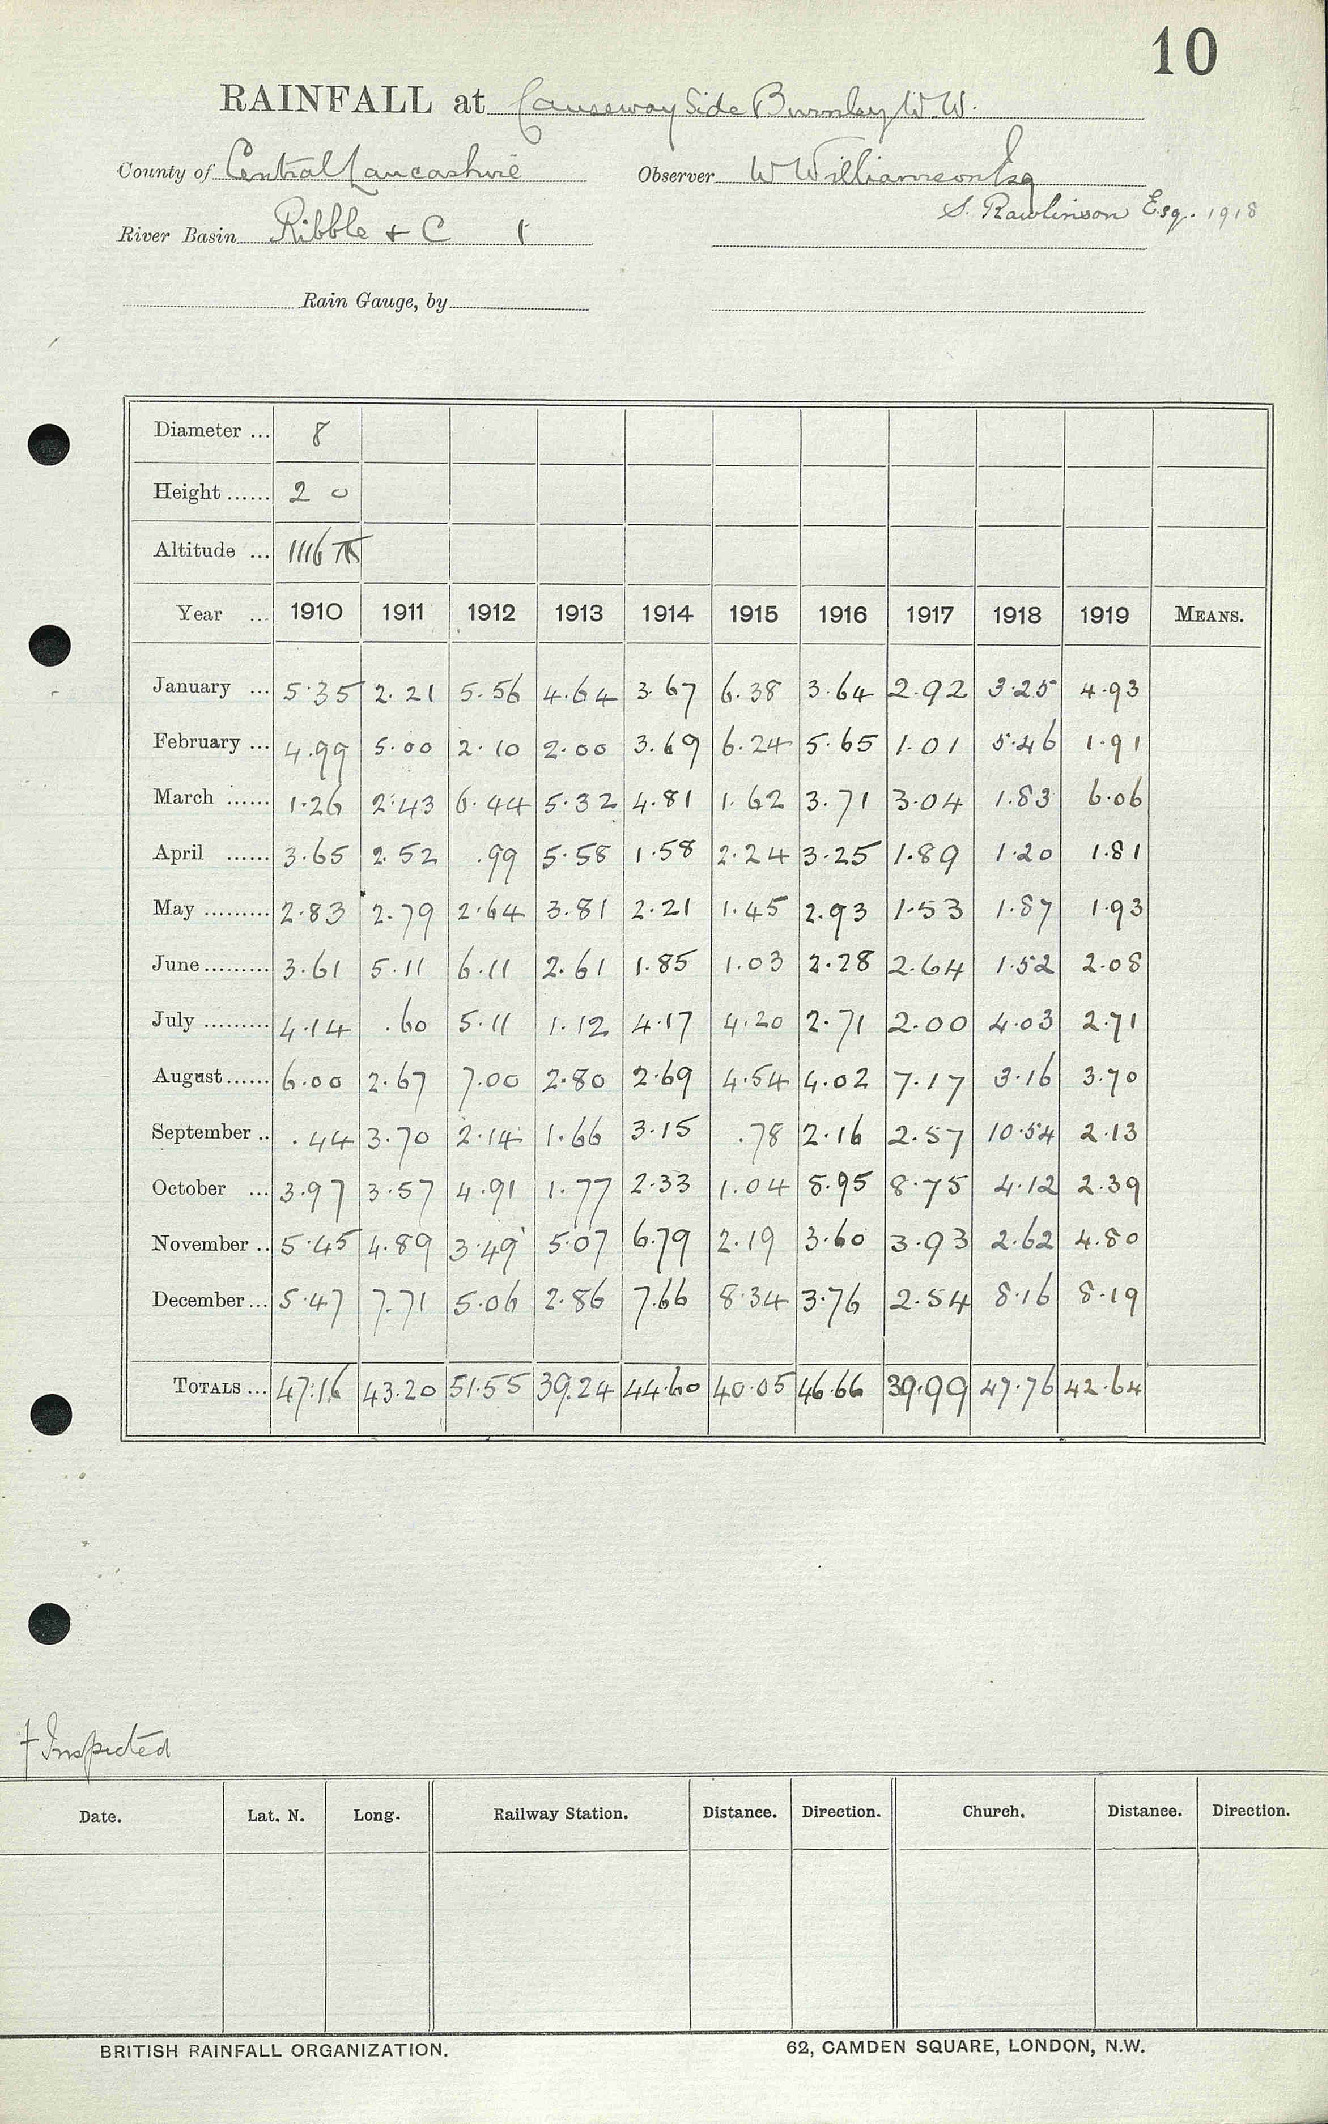 10
RAINFALL at Causeway Side Burnley W.W.
County of Central Lancashire Observer W Williamson Esq
S. Rawlinson Esq. 1918
River Basin Ribble + C 1
Rain Gauge, by
Diameter ... 8
Height ...... 2 0
Altitude ... 1116
Year ... 1910 1911 1912 1913 1914 1915 1916 1917 1918 1919 MEANS.
January ... 5.35 2.21 5.56 4.64 3.67 6.38 3.64 2.92 3.25 4.93
February ... 4.99 5.00 2.10 2.00 3.69 6.24 5.65 1.01 5.46 1.91
March ...... 1.26 2.43 6.44 5.32 4.81 1.62 3.71 3.04 1.83 6.06
April ...... 3.65 2.52 .99 5.58 1.58 2.24 3.25 1.89 1.20 1.81
May ......... 2.83 2.79 2.64 3.81 2.21 1.45 2.93 1.53 1.87 1.93
June ......... 3.61 5.11 6.11 2.61 1.85 1.03 2.28 2.64 1.52 2.08
July ......... 4.14 .60 5.11 1.12 4.17 4.20 2.71 2.00 4.03 2.71
August ...... 6.00 2.67 7.00 2.80 2.69 4.54 4.02 7.17 3.16 3.70
September .. .44 3.70 2.14 1.66 3.15 .78 2.16 2.57 10.54 2.13
October ... 3.97 3.57 4.91 1.77 2.33 1.04 8.95 8.75 4.12 2.39
November .. 5.45 4.89 3.49 5.07 6.79 2.19 3.60 3.93 2.62 4.80
December ... 5.47 7.71 5.06 2.86 7.66 8.34 3.76 2.54 8.16 8.19
TOTALS ... 47.16 43.20 51.55 39.24 44.60 40.05 46.66 39.99 47.76 42.64
† Inspected
Date. Lat. N. Long. Railway Station. Distance. Direction. Church. Distance. Direction.
BRITISH RAINFALL ORGANIZATION. 62, CAMDEN SQUARE, LONDON, N.W.